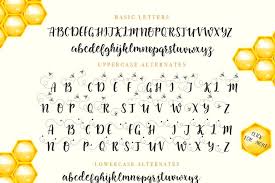 BASIC LETTERS
ABCDEFGHIJKLMNOPQRSTUVWXYZ
abcdefghijklmnopqrstuvwxyz
UPPERCASE ALTERNATES
A B C D E F G H I J K L M
N O P Q R S T U V W X Y Z
A B C D E F G H I J K L M
N O P Q R S T U V W X Y Z
LOWERCASE ALTERNATES
abcdefghijklmnopqrstuvwxyz